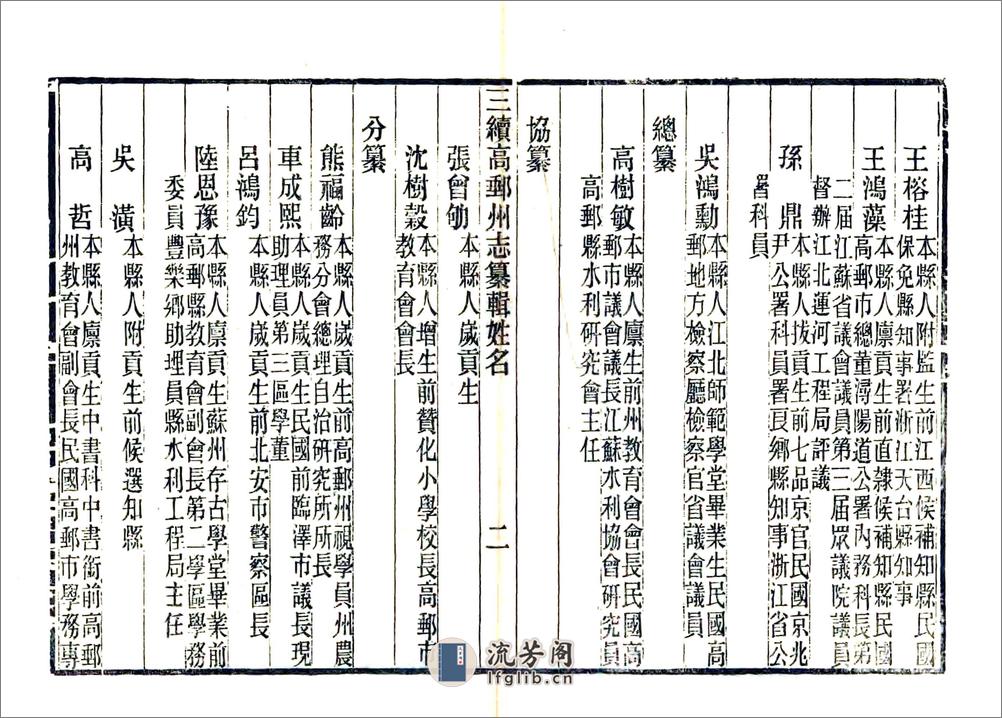 王榕桂本縣人附監生前江西候補知縣民國
保免縣知事署浙江天台縣知事
王鴻藻本縣人廪貢生前直隸候補知縣民國
高郵市總董潯陽道公署內務科長第
二屆江蘇省議會議員第三屆眾議院議員
督辦江北運河工程局評議
孫鼎本縣人拔貢生前七品京官民國京兆
尹公署科員署良鄉縣知事浙江省公
署科員
總纂
吳鴻勳本縣人江北師範學堂畢業生民國高
郵地方檢察廳檢察官省議會議員
高樹敏本縣人廪生前州教育會會長民國高
郵市議會議長江蘇水利協會研究員
高郵縣水利研究會主任
協纂
三續高郵州志纂輯姓名 二
張曾勄本縣人歲貢生
沈樹穀本縣人增生前贊化小學校長高郵市
教育會會長
分纂
熊福齡本縣人歲貢生前高郵州視學員州農
務分會總理自治研究所所長
車成熙本縣人歲貢生民國前臨澤市議長現
助理員第三區學董
呂鴻鈞本縣人歲貢生前北安市警察區長
陸恩豫本縣人廪貢生蘇州存古學堂畢業前
高郵縣教育會副會長第二學區學務
委員豐樂鄉助理員縣水利工程局主任
吳潢本縣人附貢生前候選知縣
高哲本縣人廪貢生中書科中書銜前高郵
州教育會副會長民國高郵市學務專
流芳阁
lfglib.cn